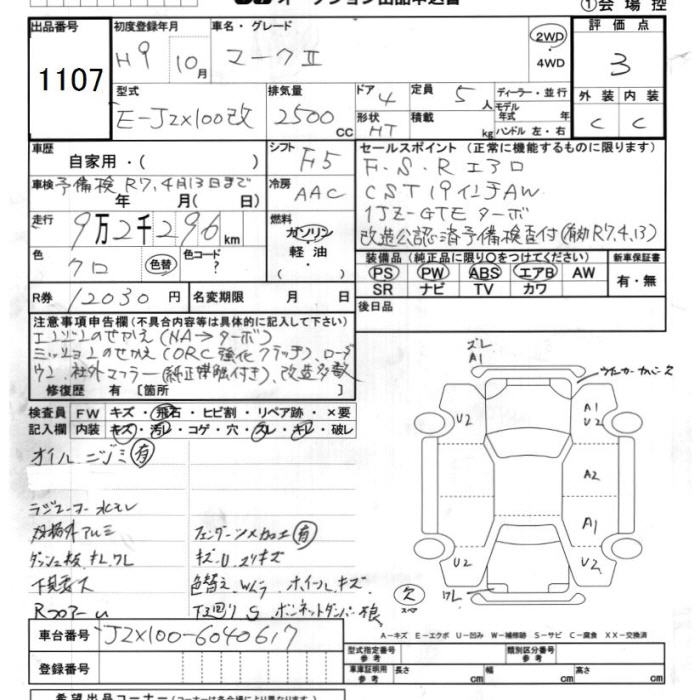 ①会場控
出品番号
1107
初度登録年月
H9 10月
車名・グレード
マークⅡ
2WD
・
4WD
評価点
3
型式
E-JZX100改
排気量
2500 CC
ドア 4
定員 5 人
形状 HT
積載 kg
ディーラー・並行
モデル年式 年
ハンドル 左・右
外装 内装
C C
車歴
自家用・( )
シフト F5
セールスポイント (正常に機能するものに限ります)
F.S.Rエアロ
CST 19インチAW
1JZ-GTE ターボ
改造公認済予備検査付(有効R7.4.13)
車検 予備検 R7.4月13日まで
年 月( 日)
冷房 AAC
走行
9万2千296km
燃料
ガソリン
軽油
色
クロ
色替
色コード
?
装備品 (純正品に限り○をつけてください)
新車保証書
PS PW ABS エアB AW
SR ナビ TV カワ
有・無
R券 12030円
名変期限 月 日
後日品
注意事項申告欄 (不具合内容等は具体的に記入して下さい)
エンジンのせかえ(NA→ターボ)
ミッションのせかえ(ORC強化クラッチ)、ローダ
ウン、社外マフラー(純正触媒付き)、改造多数
修復歴 有 [箇所 ]
検査員
記入欄
FW キズ・飛石・ヒビ割・リペア跡・×要
内装 キズ・汚レ・コゲ・穴・スレ・キレ・破レ
オイルニジミ有
ラジエーター水モレ
規格外アルミ
フェンダーツメ加工有
ダッシュ板、ナビ、ワレ
キズ・U・スリキズ
下見要ス
色替え、Wムラ ホイールキズ
Rフロアーu
下廻りS ボンネットダンパー狼
ズレ
A1
ウィンカーカバー欠
U2
A1
U2
A2
A1
U2
U2
ワレ
欠
スペア
A-キズ E-エクボ U-凹み W-補修跡 S-サビ C-腐食 XX-交換済
車台番号 JZX100-6040617
登録番号
型式指定番号
参考
類別区分番号
参考
車庫証明用
参考
長さ cm 幅 cm 高さ cm